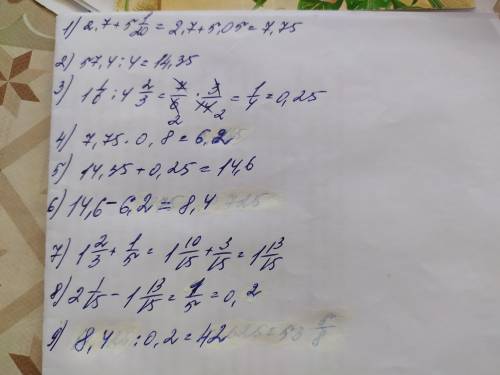 1) 2,7+5 1/20 = 2,7+5,05 = 7,75
2) 57,4:4 = 14,35
3) 1 1/6 : 4 2/3 = 7/6 · 3/14 = 1/4 = 0,25
2 2
4) 7,75 · 0,8 = 6,2
5) 14,35 + 0,25 = 14,6
6) 14,6 - 6,2 = 8,4
7) 1 2/3 + 1/5 = 1 10/15 + 3/15 = 1 13/15
8) 2 1/15 - 1 13/15 = 1/5 = 0,2
9) 8,4 : 0,2 = 42